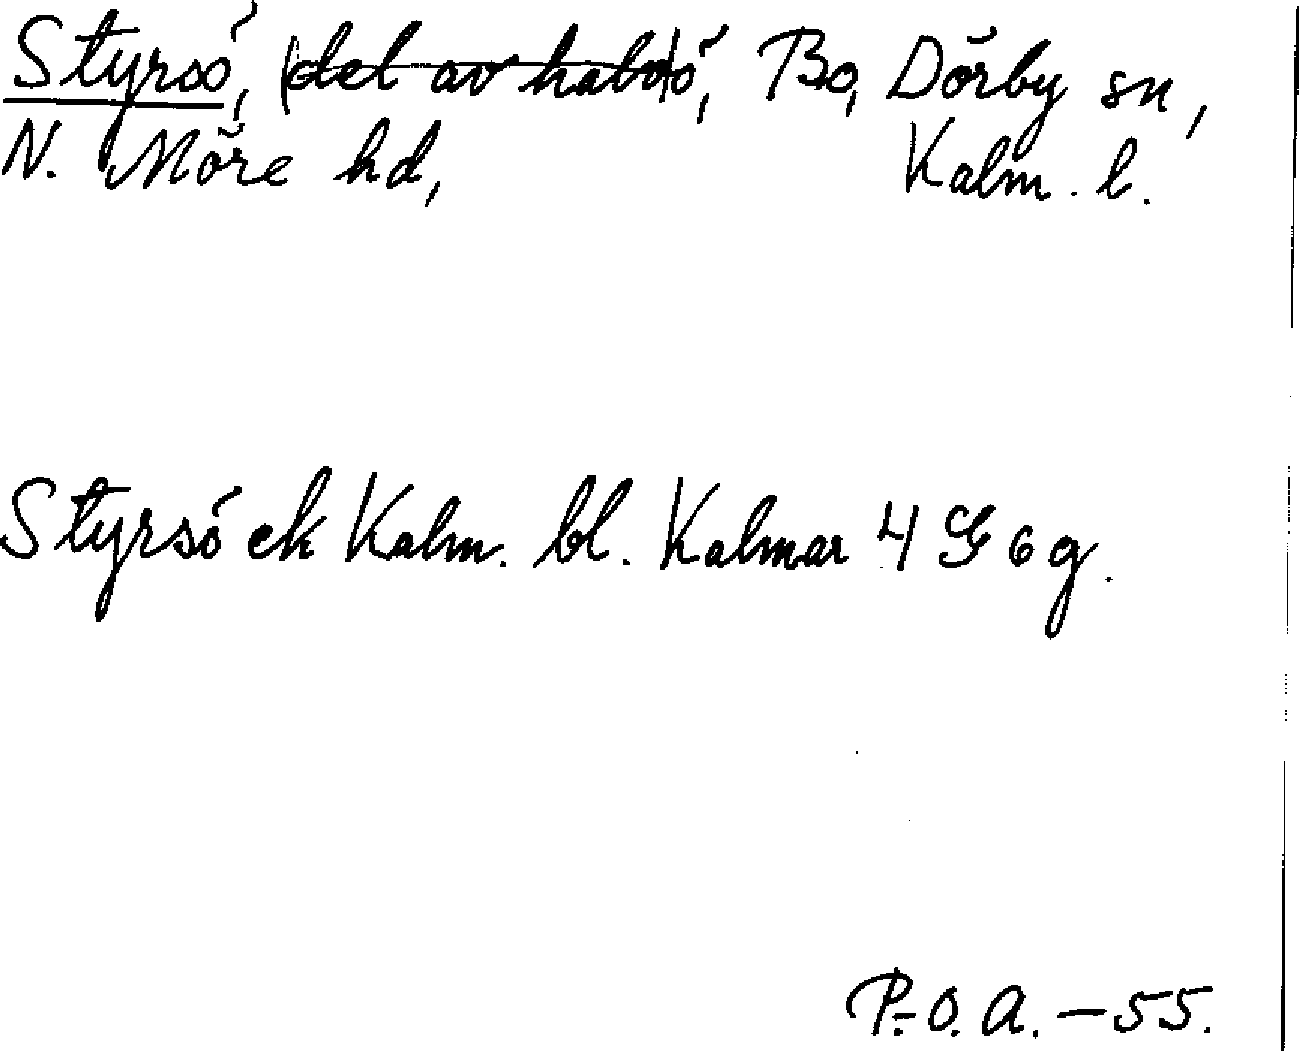 Styrsö, (del av halvö), Bo, Dörby sn,
N. Möre hd, Kalm. l.
Styrsö ek Kalm. bl. Kalmar 4 G 6 g.
P.-O. A. – 55.